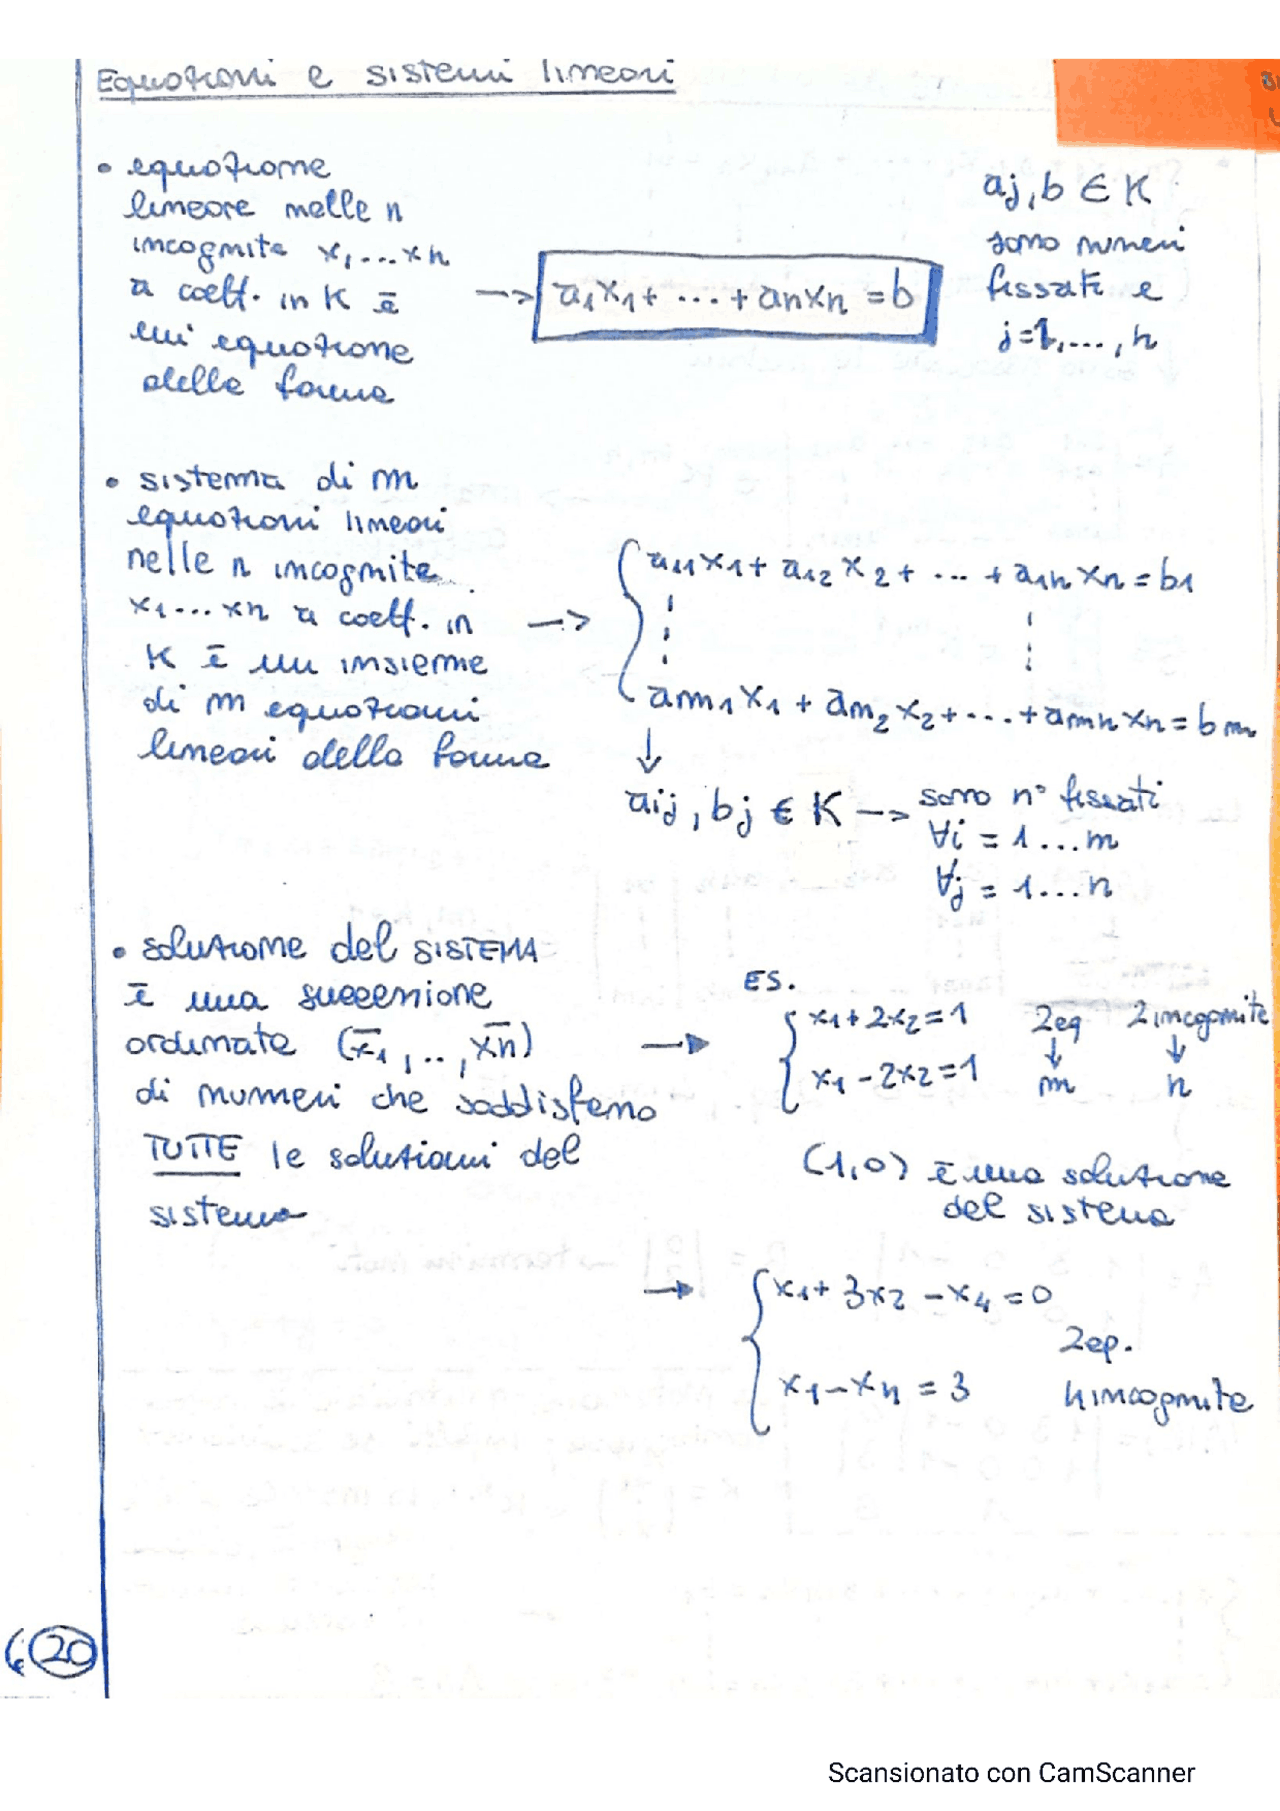 Equazioni e sistemi lineari
• equazione
lineare nelle n
incognite x1...xn
a coeff. in K è
un' equazione
della forma
→ a1x1 + ... + anxn = b
aj, b ∈ K
sono numeri
fissati e
j=1,..., n
• sistema di m
equazioni lineari
nelle n incognite
x1...xn a coeff. in
K è un insieme
di m equazioni
lineari della forma
→ { a11x1 + a12x2 + ... + a1nxn = b1
am1x1 + am2x2 + ... + amnxn = bm
↓
aij, bj ∈ K → sono n° fissati
∀i = 1...m
∀j = 1...n
• soluzione del SISTEMA
è una successione
ordinata (x̄1, .., x̄n)
di numeri che soddisfano
TUTTE le soluzioni del
sistema
→ ES.
{ x1 + 2x2 = 1
x1 - 2x2 = 1
2eq 2 incognite
↓ ↓
m n
(1,0) è una soluzione
del sistema
→ { x1 + 3x2 - x4 = 0
x1 - x4 = 3
2eq.
4 incognite
20
Scansionato con CamScanner